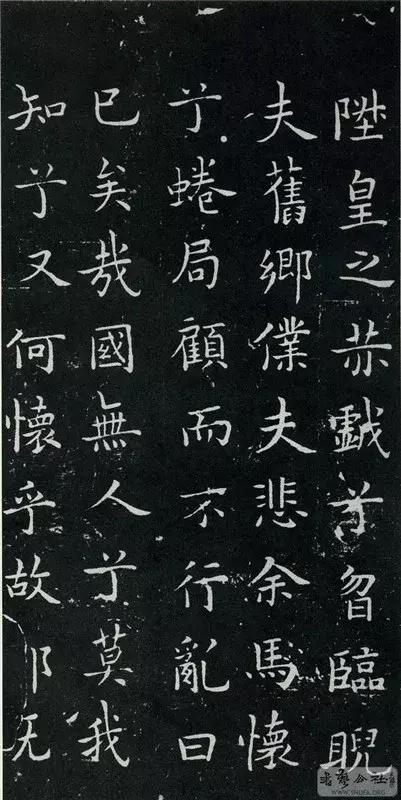 陞皇之赤戲兮曶臨睨
夫舊鄉僕夫悲余馬懷
兮蜷局顧而不行亂曰
已矣哉國無人兮莫我
知兮又何懷乎故
书艺公社
WWW.SHUFA.ORG